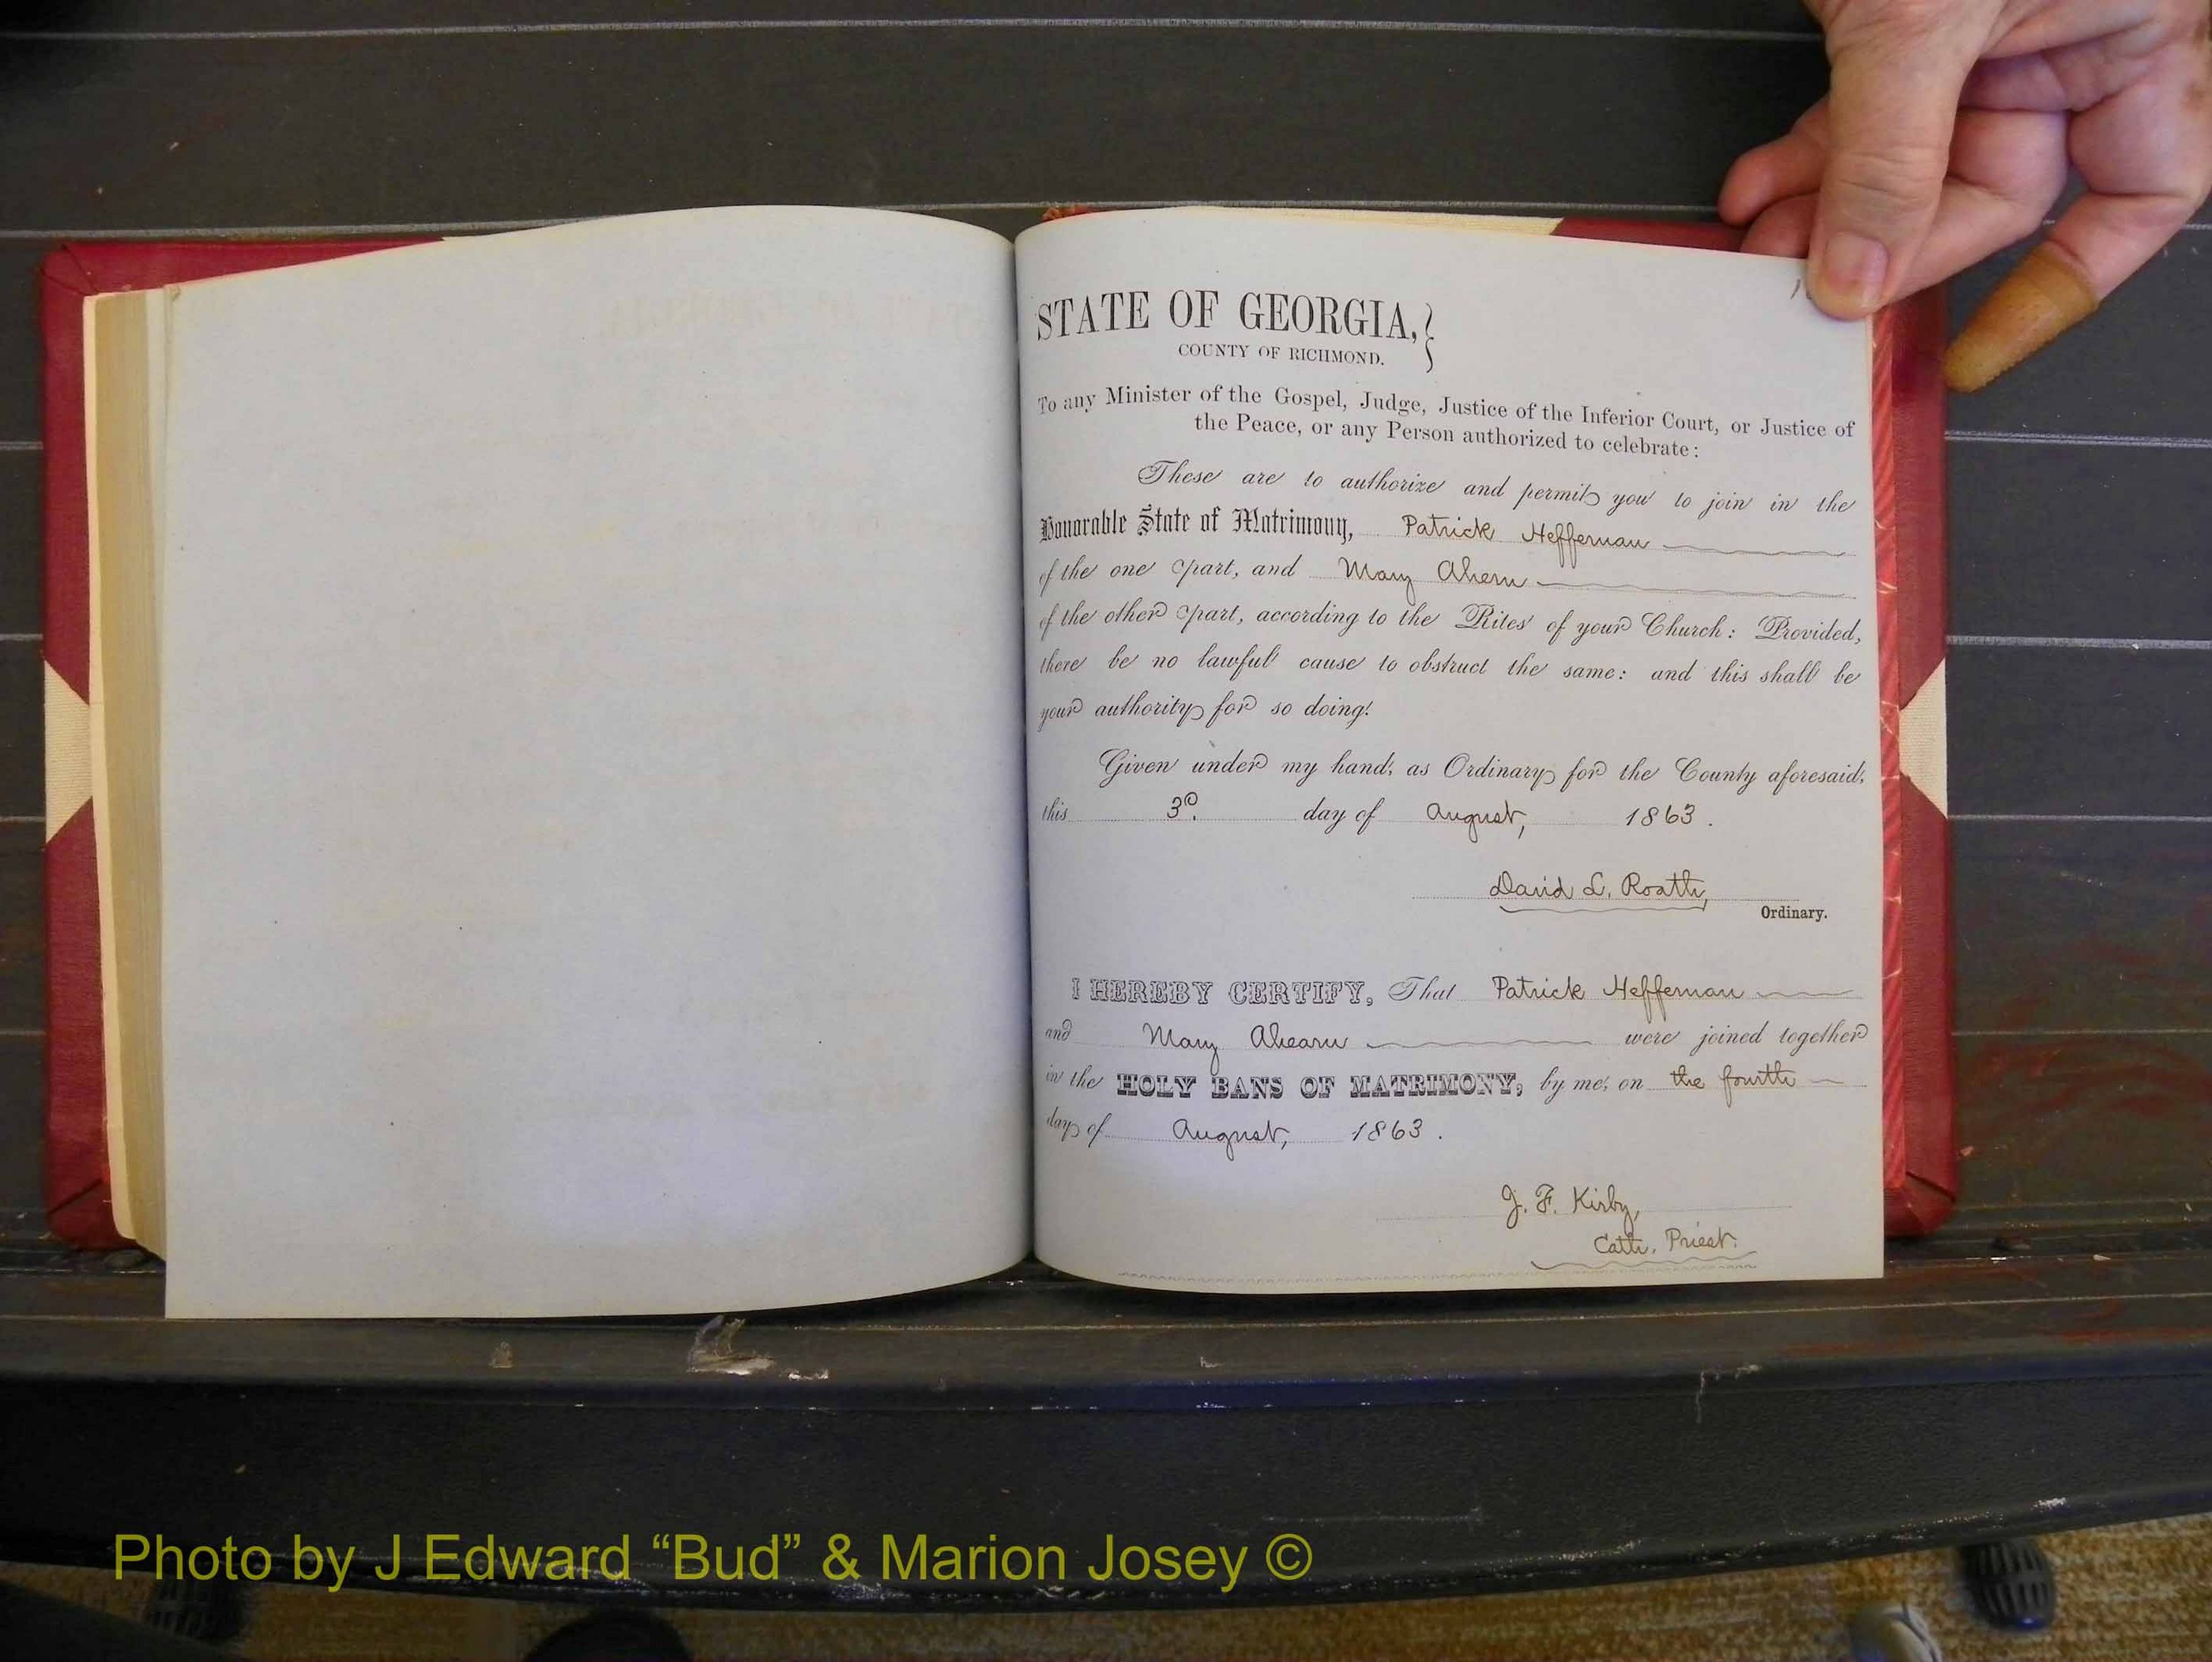 STATE OF GEORGIA,}
COUNTY OF RICHMOND.
To any Minister of the Gospel, Judge, Justice of the Inferior Court, or Justice of
the Peace, or any Person authorized to celebrate:
These are to authorize and permit you to join in the
Honorable State of Matrimony, Patrick Heffernan
of the one part, and Mary Ahern
of the other part, according to the Rites of your Church: Provided,
there be no lawful cause to obstruct the same: and this shall be
your authority for so doing!
Given under my hand, as Ordinary for the County aforesaid,
this 3d. day of August, 1863.
David L. Roath,
Ordinary.
I HEREBY CERTIFY, That Patrick Heffernan
and Mary Ahearn were joined together
in the HOLY BANS OF MATRIMONY, by me, on the fourth
day of August, 1863.
J. F. Kirby,
Cath. Priest.
Photo by J Edward “Bud” & Marion Josey ©